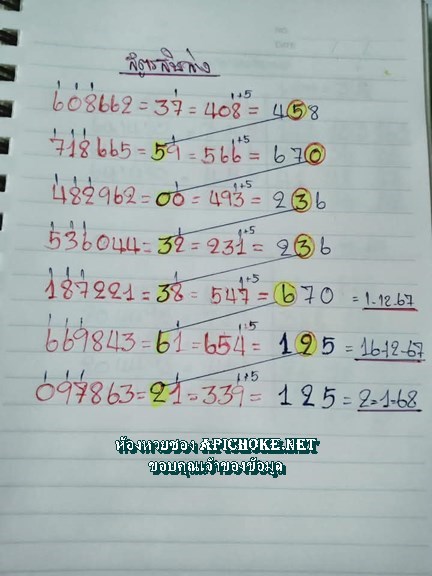 สูตรสิบล่าง
608662 = 37 = 408 = 458
+5
718665 = 59 = 566 = 670
+5
482962 = 00 = 493 = 236
+5
536044 = 32 = 231 = 236
+5
187221 = 38 = 547 = 670 = 1-12-67
+5
669843 = 61 = 654 = 125 = 16-12-67
+5
097863 = 21 = 339 = 125 = 2-1-68
ห้องหวยซอง APICHOKE.NET
ขอบคุณเจ้าของข้อมูล